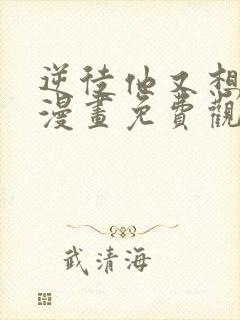 逆徒他又想
漫畫免費觀
武清海